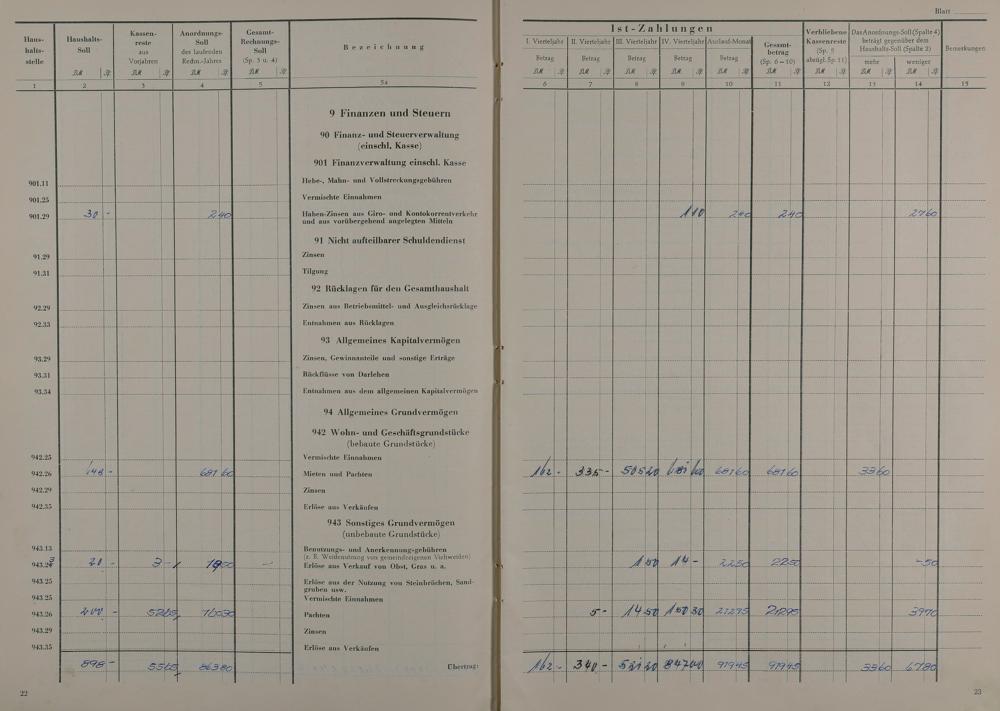 Blatt
Haus-
halts-
stelle
Haushalts-
Soll
Kassen-
reste
aus
Vorjahren
Anordnungs-
Soll
des laufenden
Rechn.-Jahres
Gesamt-
Rechnungs-
Soll
(Sp. 3 u. 4)
Bezeichnung
1 2 3 4 5 5a
9 Finanzen und Steuern
90 Finanz- und Steuerverwaltung
(einschl. Kasse)
901 Finanzverwaltung einschl. Kasse
901.11 Hebe-, Mahn- und Vollstreckungsgebühren
901.25 Vermischte Einnahmen
901.29 30 - 2 40 Haben-Zinsen aus Giro- und Kontokorrentverkehr
und aus vorübergehend angelegten Mitteln
91 Nicht aufteilbarer Schuldendienst
91.29 Zinsen
91.31 Tilgung
92 Rücklagen für den Gesamthaushalt
92.29 Zinsen aus Betriebsmittel- und Ausgleichsrücklage
92.33 Entnahmen aus Rücklagen
93 Allgemeines Kapitalvermögen
93.29 Zinsen, Gewinnanteile und sonstige Erträge
93.31 Rückflüsse von Darlehen
93.34 Entnahmen aus dem allgemeinen Kapitalvermögen
94 Allgemeines Grundvermögen
942 Wohn- und Geschäftsgrundstücke
(bebaute Grundstücke)
942.25 Vermischte Einnahmen
942.26 681 60 Mieten und Pachten
942.29 Zinsen
942.35 Erlöse aus Verkäufen
943 Sonstiges Grundvermögen
(unbebaute Grundstücke)
943.13 Benutzungs- und Anerkennungsgebühren
(z. B. Weidenutzung von gemeindeeigenen Viehweiden)
20 - 3 - Erlöse aus Verkauf von Obst, Gras u. a.
943.25 Erlöse aus der Nutzung von Steinbrüchen, Sand-
gruben usw.
943.25 Vermischte Einnahmen
943.26 200 - 52 65 160 30 Pachten
943.29 Zinsen
943.35 Erlöse aus Verkäufen
898 - 55 65 863 80 Übertrag:
22
Ist-Zahlungen
I. Vierteljahr II. Vierteljahr III. Vierteljahr IV. Vierteljahr Auslauf-Monat
Betrag Betrag Betrag Betrag Betrag
Gesamt-
betrag
(Sp. 6–10)
Verbliebene
Kassenreste
(Sp. 5
abzügl. Sp. 11)
Das Anordnungs-Soll (Spalte 4)
beträgt gegenüber dem
Haushalts-Soll (Spalte 2)
mehr weniger
Bemerkungen
6 7 8 9 10 11 12 13 14 15
1 10 2 40 2 40 27 60
162 - 335 - 505 20 681 60 681 60 33 60
1 50 14 - 22 50 22 50 - 50
5 - 14 50 150 30 212 95 212 95 39 70
162 - 340 - 521 20 847 00 919 45 919 45 33 60 67 80
23